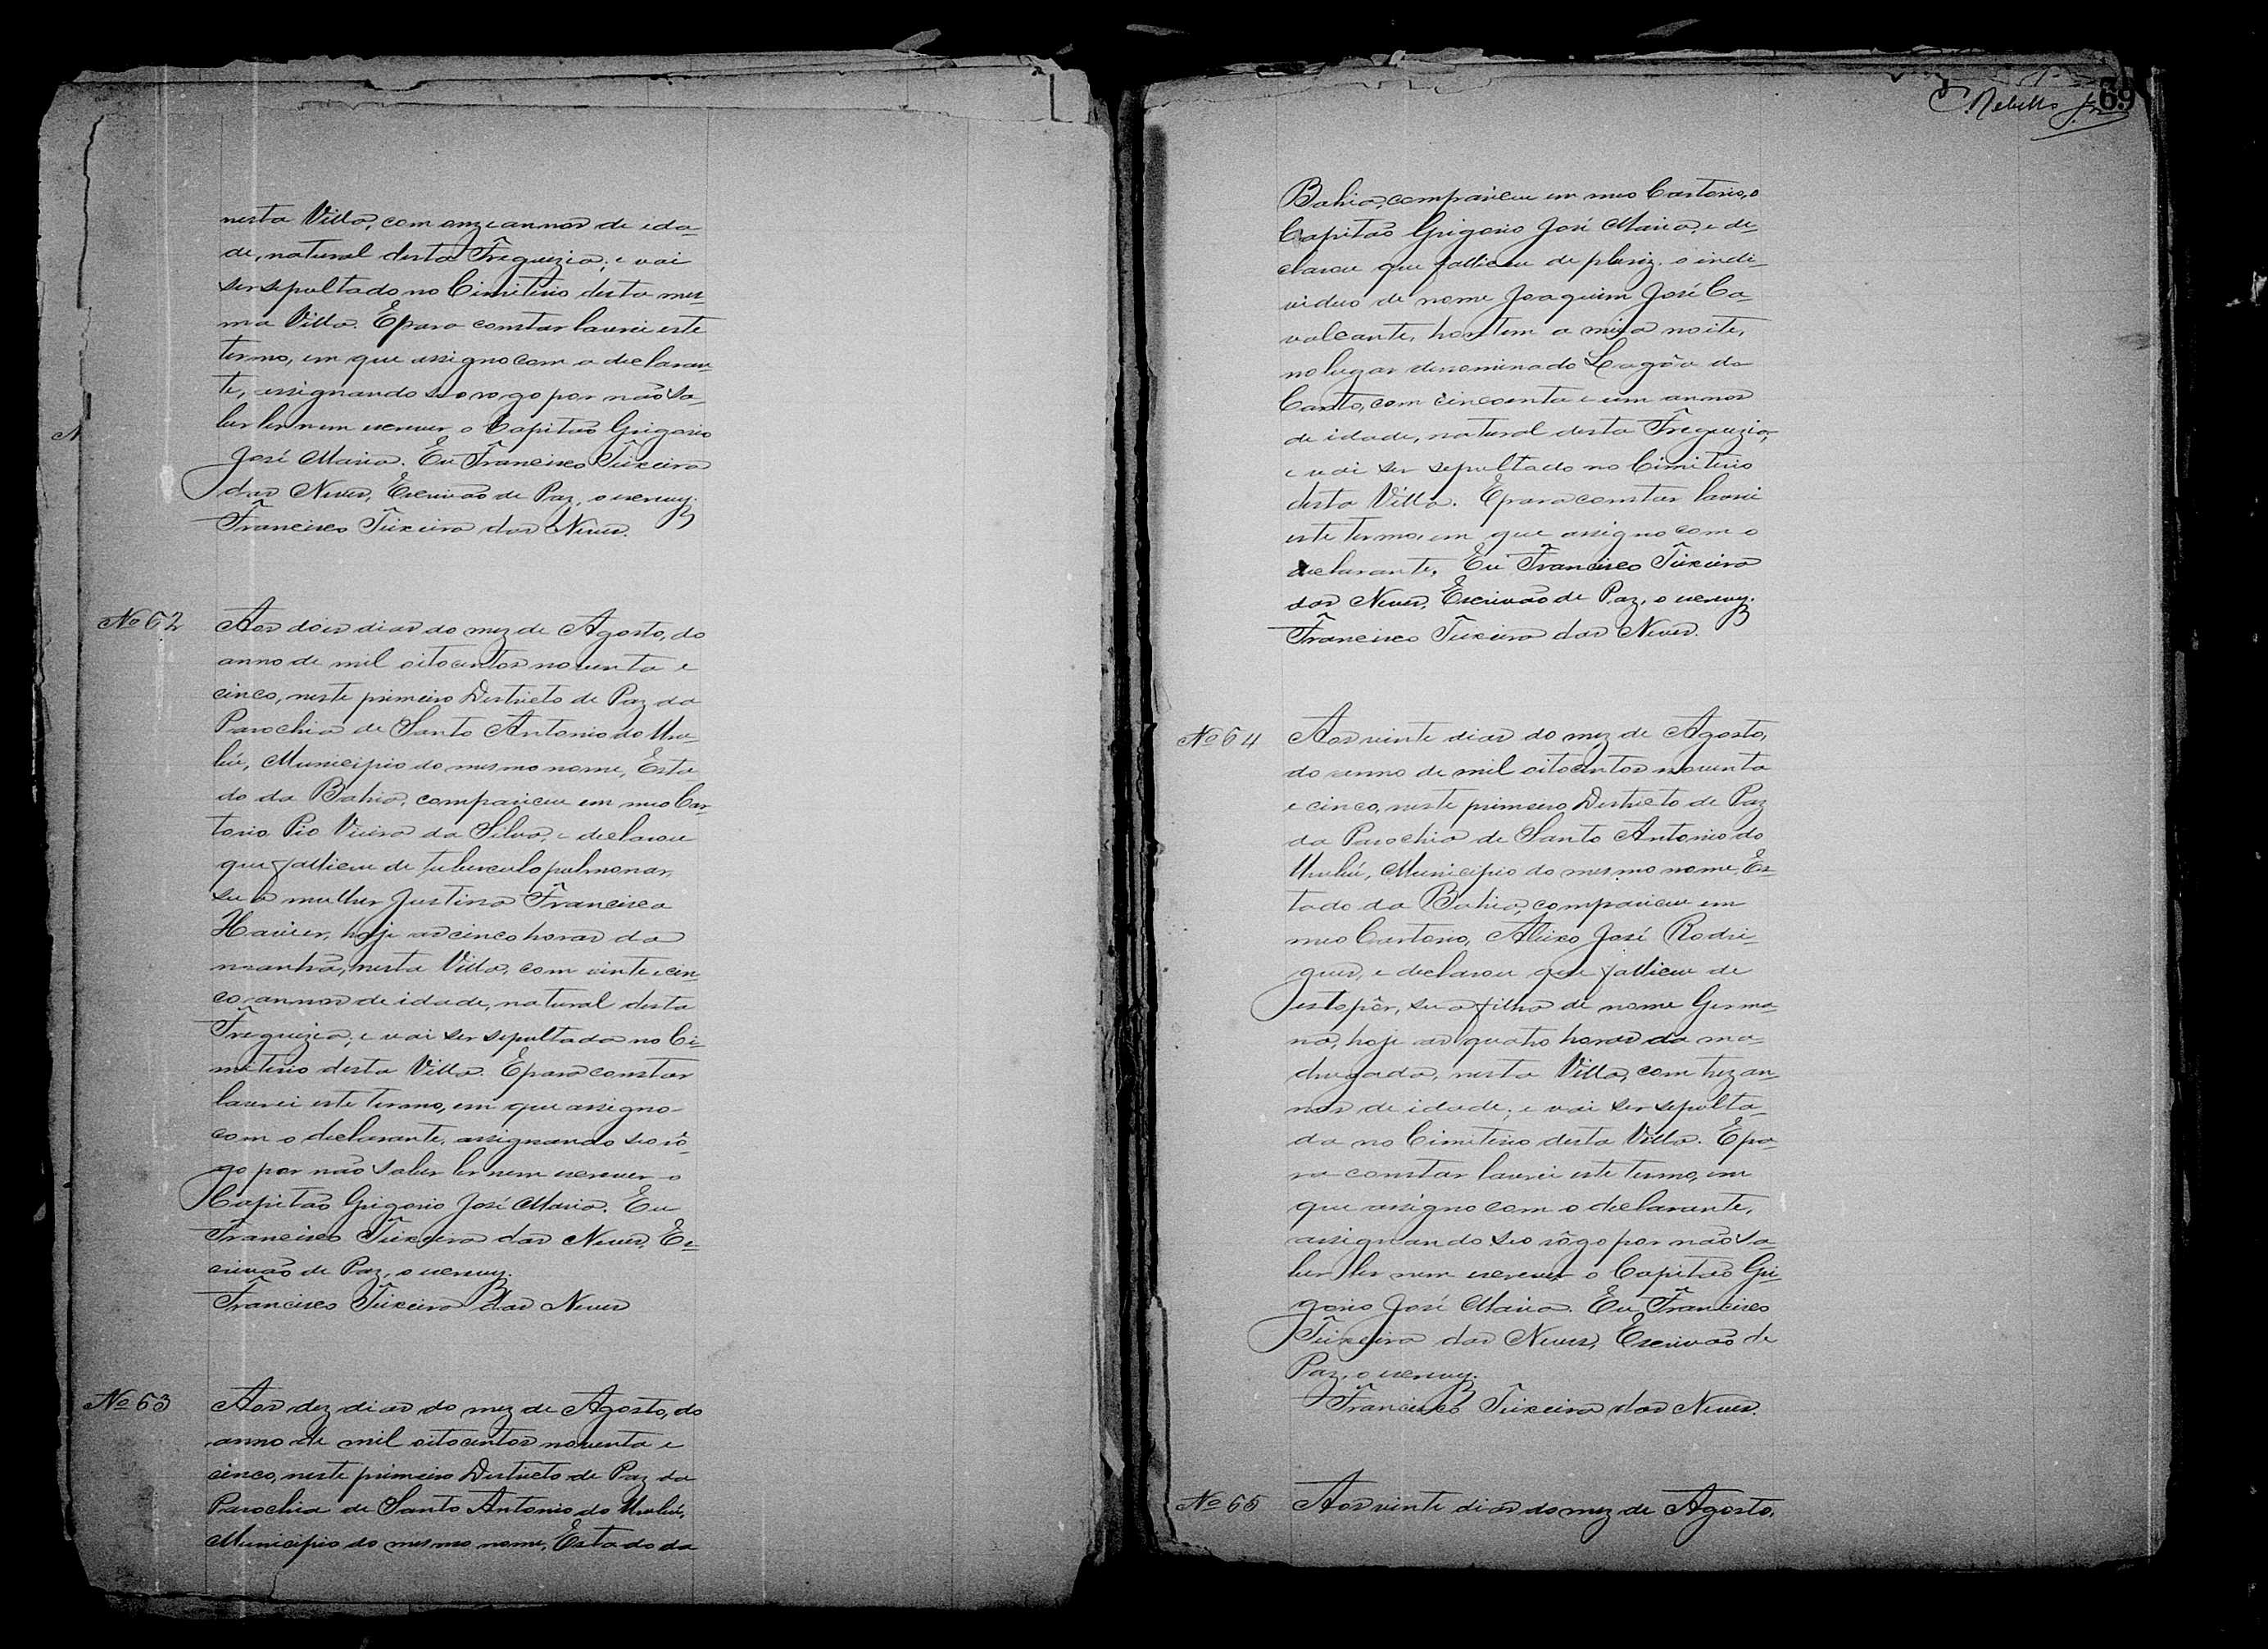 nesta Villa, com onze annos de ida-
de, natural desta Freguezia; e vai
ser sepultado no Cimiterio desta mes-
ma Villa. E para constar lavrei este
termo, em que assigno com a declaran-
te, assignando seo rogo por não sa-
ber ler nem escrever o Capitão Grigorio
José Maria. Eu Francisco Teixeira
das Neves, Escrivão de Paz, o escrevy.
Francisco Teixeira das Neves.
Nº 62 Aos dois dias do mez de Agosto, do
anno de mil oitocentos noventa e
cinco, neste primeiro Destricto de Paz da
Parochia de Santo Antonio do Uru-
bú, Municipio do mesmo nome, Esta
do da Bahia, compareceu em meo Car-
torio Pio Vieira da Silva, e declarou
que falliceu de tuberculo pulmonar,
sua mulher Justina Francisca
Xavier, hoje as cinco horas da
manhã, nesta Villa, com vinte e cin
co annos de idade, natural desta
Freguezia, e vai ser sepultada no Ci-
miterio desta Villa. E para constar
lavrei este termo, em que assigno
com o declarante, assignando seo rô-
go por não saber ler nem escrever o
Capitão Grigorio José Maria. Eu
Francisco Teixeira das Neves, Es-
crivão de Paz, o escrevy.
Francisco Teixeira das Neves
Nº 63 Aos dez dias do mez de Agosto, do
anno de mil oitocentos noventa e
cinco, neste primeiro Destricto de Paz da
Parochia de Santo Antonio do Urubú,
Municipio do mesmo nome, Estado da
69
Rebello Jr
Bahia, compareceu em meo Cartorio, o
Capitão Grigorio José Maria, e de-
clarou que falliceu de pleriz o indi-
viduo de nome Joaquim José Ca-
valcante, hontem a meia noite,
no lugar denominado Lagôa do
Canto, com cincoenta e um annos
de idade, natural desta Freguezia,
e vai ser sepultado no Cimiterio
desta Villa. E para constar lavrei
este termo, em que assigno com o
declarante, Eu Francisco Teixeira
das Neves, Escrivão de Paz, o escrevy.
Francisco Teixeira das Neves.
Nº 64 Aos vinte dias do mez de Agosto,
do anno de mil oitocentos noventa
e cinco, neste primeiro Destricto de Paz
da Parochia de Santo Antonio do
Urubú, Municipio do mesmo nome, Es-
tado da Bahia, compareceu em
meo Cartorio, Aleixo José Rodri-
gues, e declarou que falliceu de
estopôr, sua filha de nome Germa-
na, hoje as quatro horas da ma-
drugada, nesta Villa, com trez an-
nos de idade; e vai ser sepulta-
da no Cimiterio desta Villa. E pa-
ra constar lavrei este termo, em
que assigno com o declarante,
assignando seo rôgo por não sa-
ber ler nem escrever o Capitão Gri-
gorio José Maria. Eu Francisco
Teixeira das Neves, Escrivão de
Paz, o escrevy.
Francisco Teixeira das Neves.
Nº 65 Aos vinte dias do mez de Agosto,